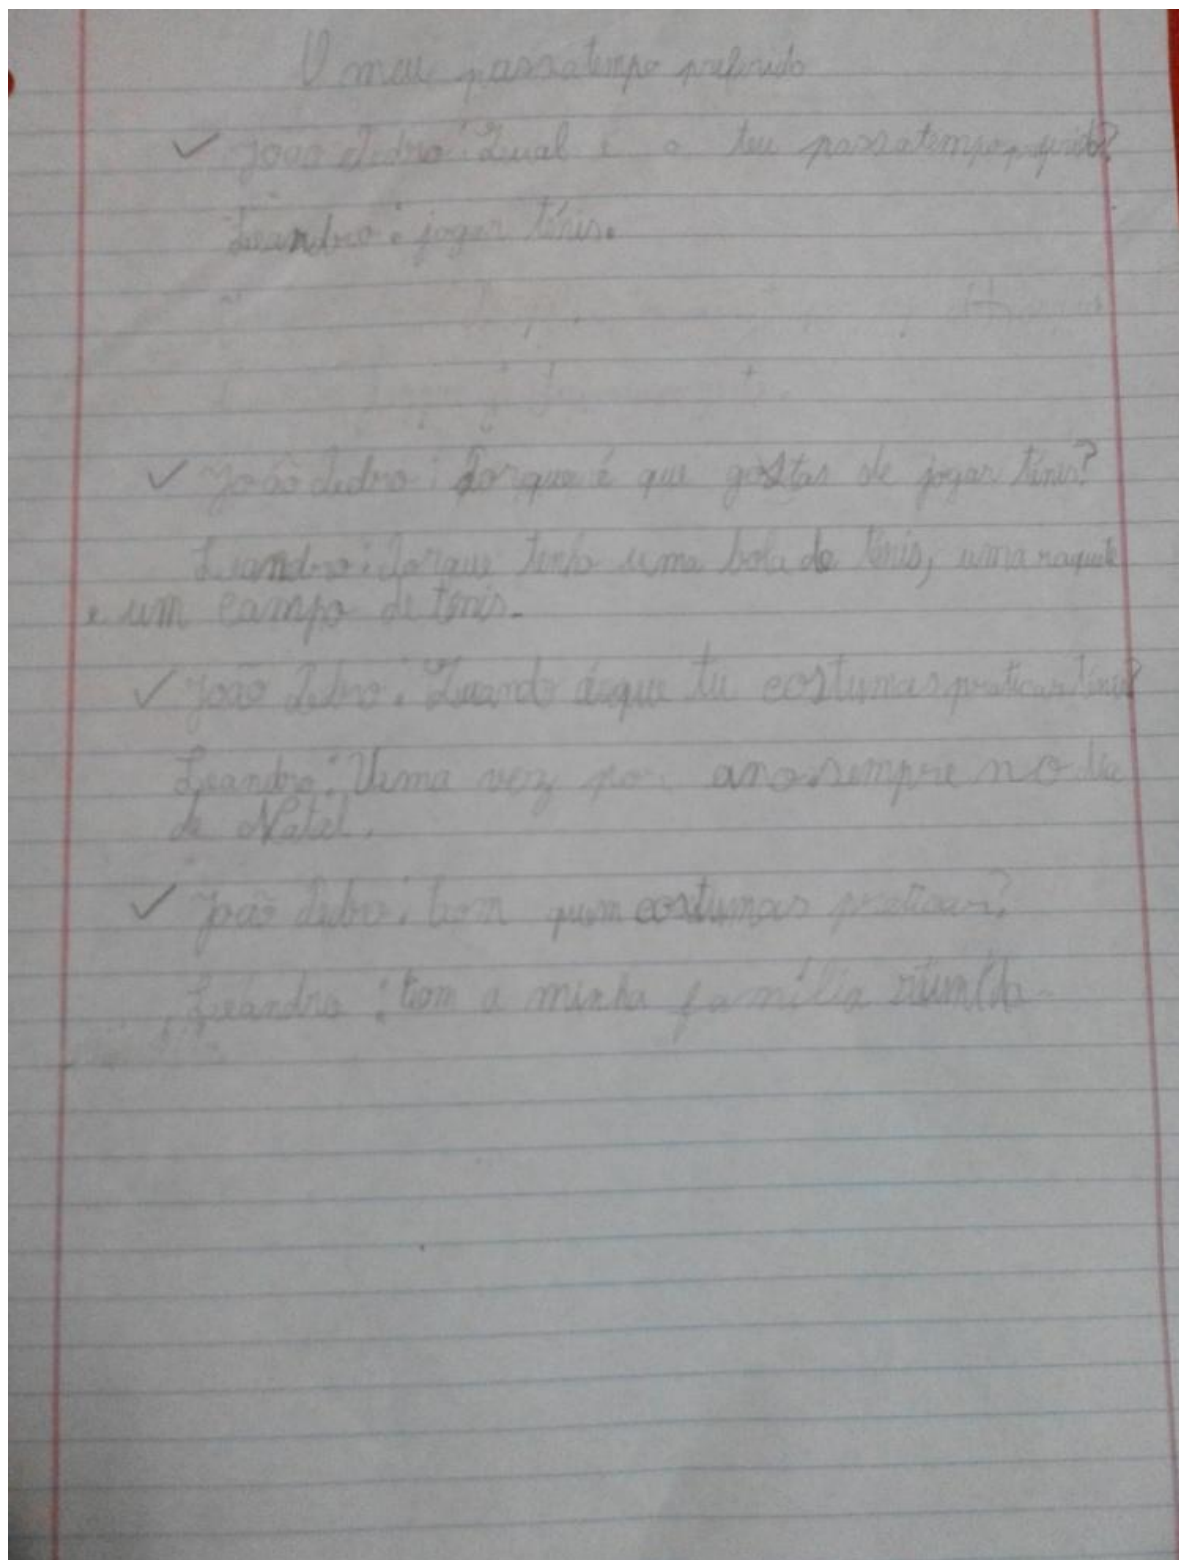 O meu passatempo preferido
João Pedro: Qual é o teu passatempo preferido?
Leandro: jogar ténis.
João Pedro: Porque é que gostas de jogar ténis?
Leandro: Porque tenho uma bola de ténis, uma raquete
e um campo de ténis.
João Pedro: Quando é que tu costumas praticar ténis?
Leandro: Uma vez por ano sempre no dia
de Natal.
João Pedro: Com quem costumas praticar?
Leandro: Com a minha família